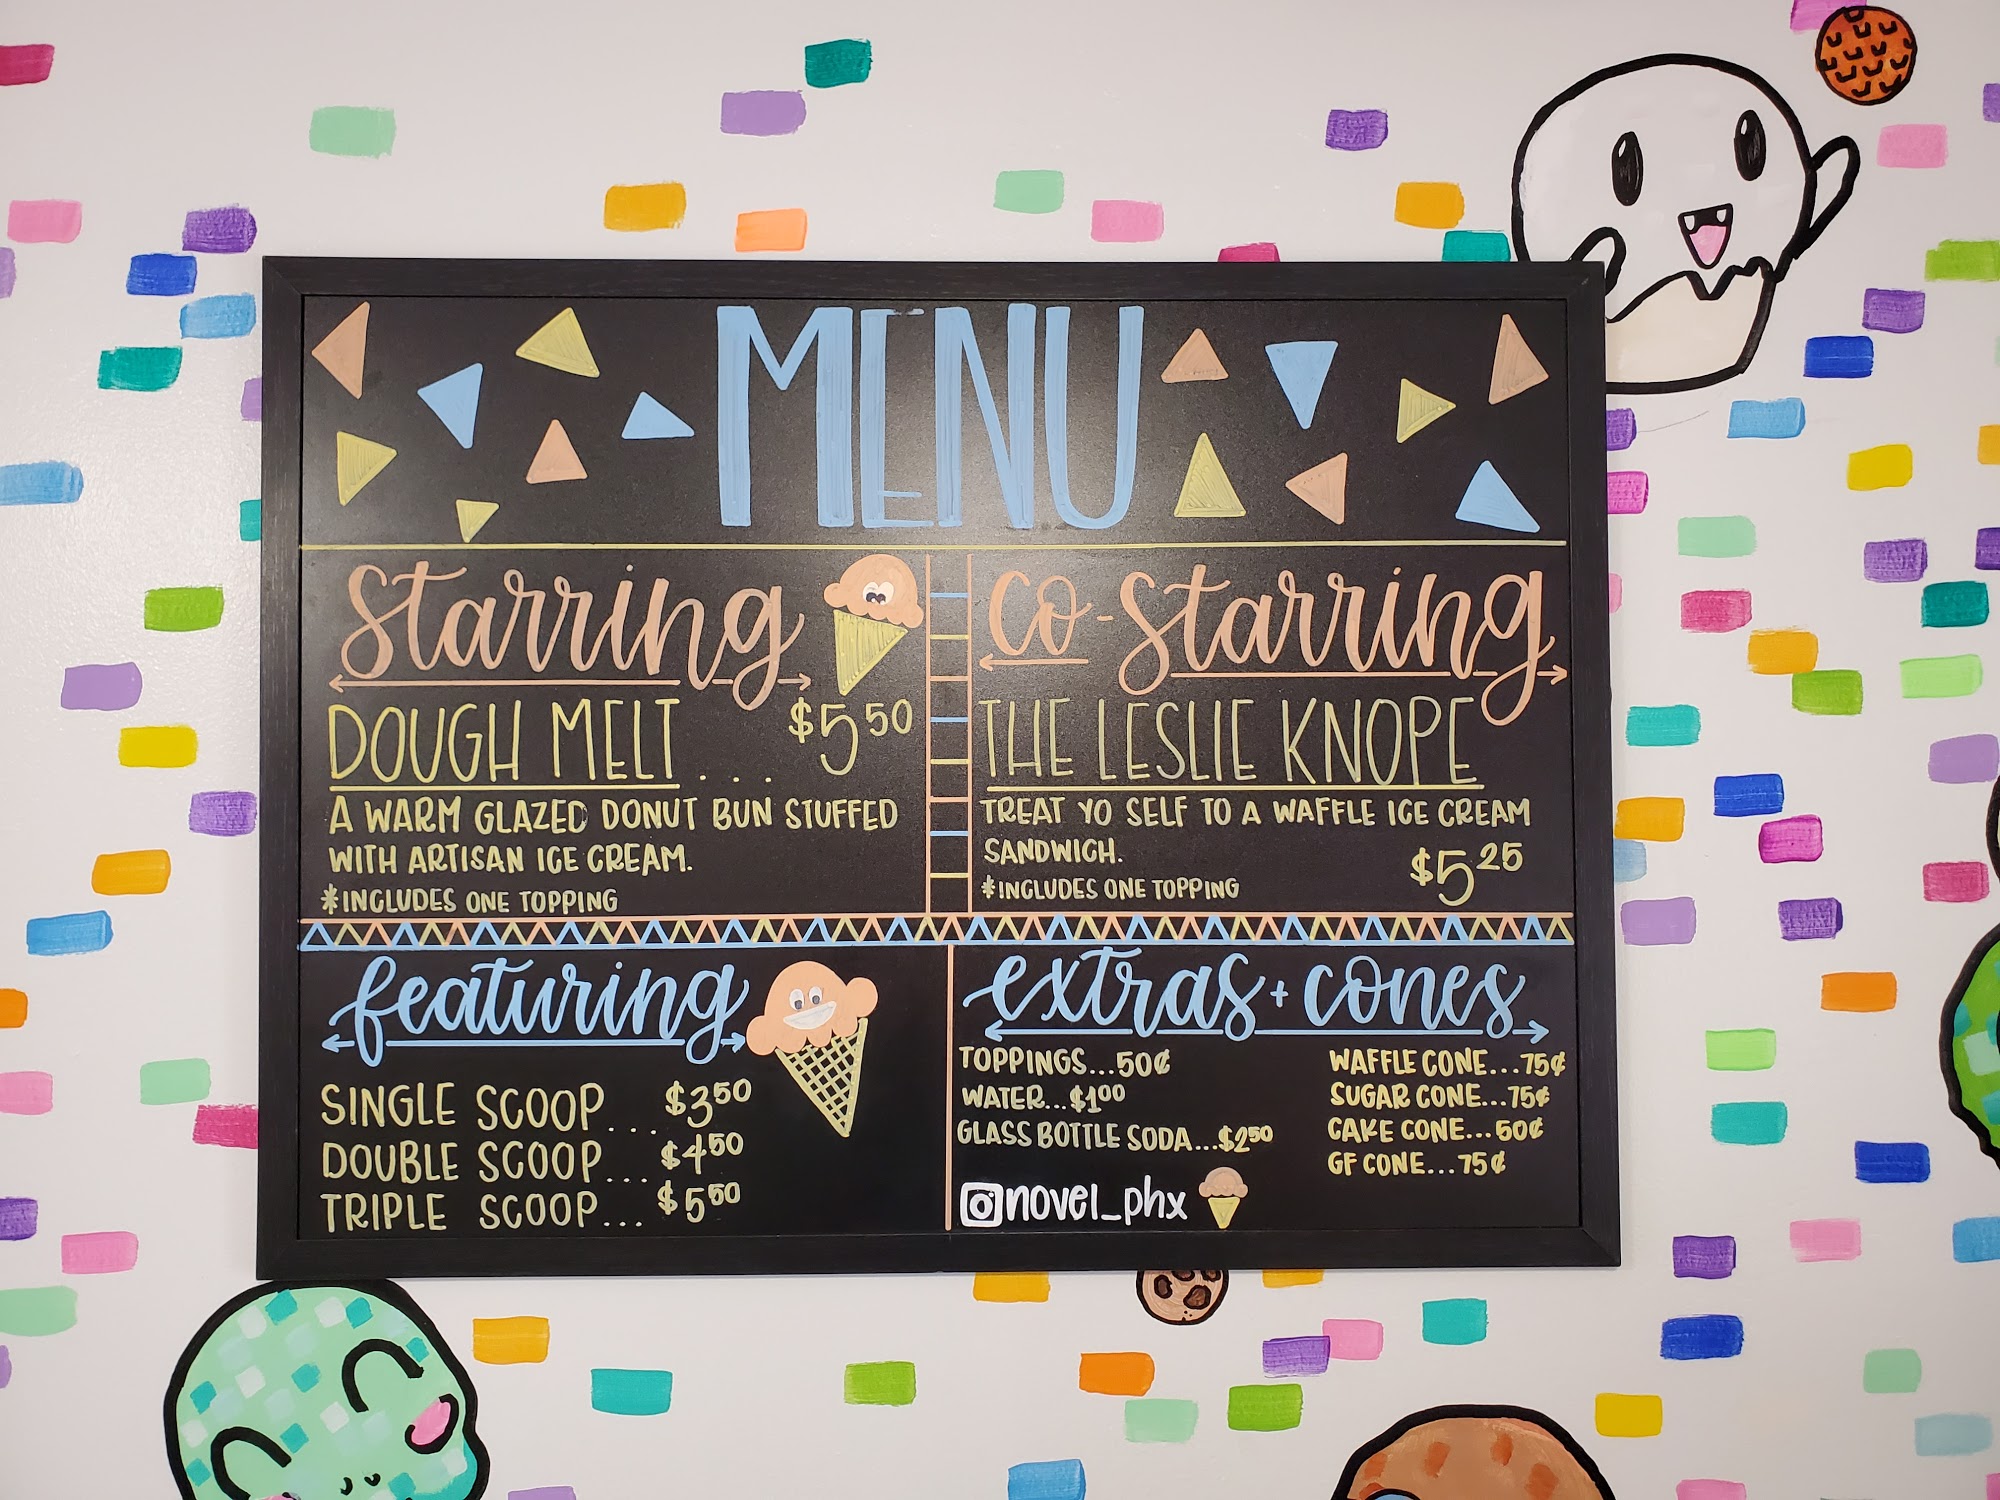 MENU
starring
DOUGH MELT... $5 50
A WARM GLAZED DONUT BUN STUFFED
WITH ARTISAN ICE CREAM.
*INCLUDES ONE TOPPING
co-starring
THE LESLIE KNOPE
TREAT YO SELF TO A WAFFLE ICE CREAM
SANDWICH.
$5 25
*INCLUDES ONE TOPPING
featuring
SINGLE SCOOP... $3 50
DOUBLE SCOOP... $4 50
TRIPLE SCOOP... $5 50
extras + cones
TOPPINGS...50¢
WATER...$1 00
GLASS BOTTLE SODA...$2 50
WAFFLE CONE...75¢
SUGAR CONE...75¢
CAKE CONE...50¢
GF CONE...75¢
novel_phx